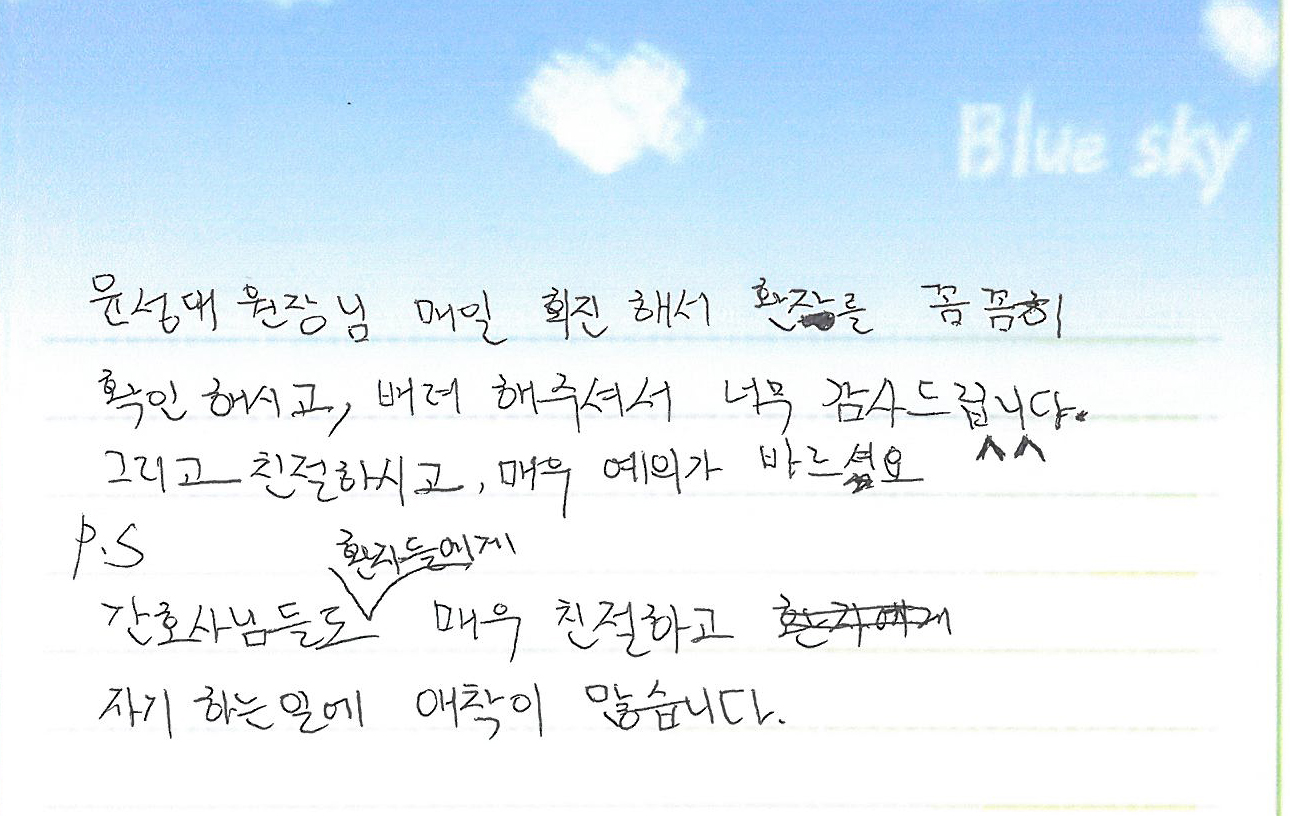 Blue sky
윤성대 원장님 매일 회진 해서 환자를 꼼꼼히
확인 해시고, 배려 해주셔서 너무 감사드립니다.
그리고 친절하시고, 매우 예의가 바르셔요 ^^
P.S
환자들에게
간호사님들도 매우 친절하고 환자에게
자기 하는일에 애착이 많습니다.